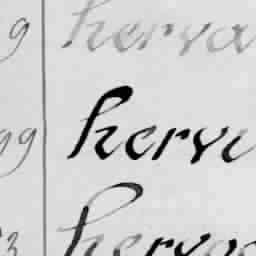 9 herva
99 hervi
3 hervo